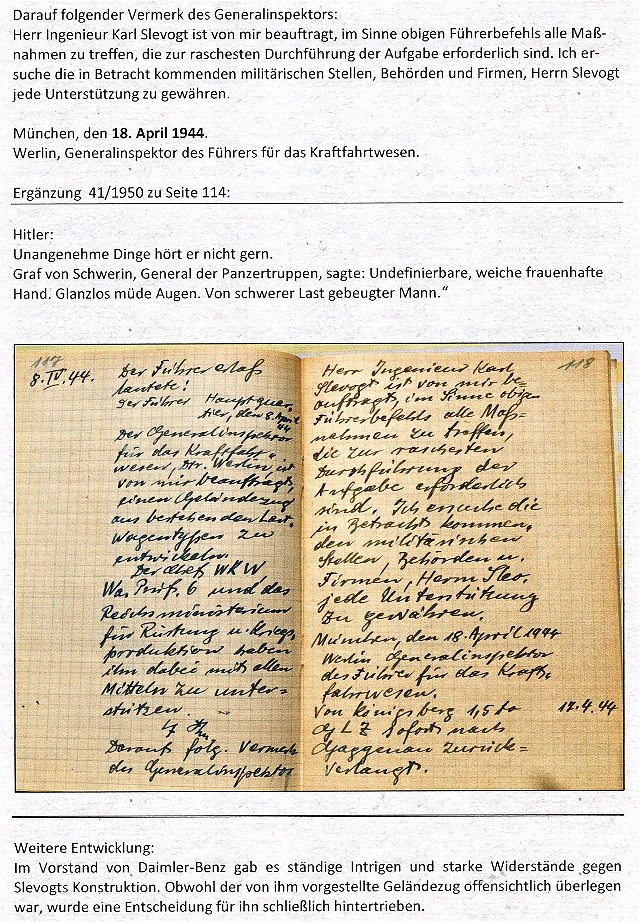 Darauf folgender Vermerk des Generalinspektors:
Herr Ingenieur Karl Slevogt ist von mir beauftragt, im Sinne obigen Führerbefehls alle Maß-
nahmen zu treffen, die zur raschesten Durchführung der Aufgabe erforderlich sind. Ich er-
suche die in Betracht kommenden militärischen Stellen, Behörden und Firmen, Herrn Slevogt
jede Unterstützung zu gewähren.
München, den 18. April 1944.
Werlin, Generalinspektor des Führers für das Kraftfahrtwesen.
Ergänzung 41/1950 zu Seite 114:
Hitler:
Unangenehme Dinge hört er nicht gern.
Graf von Schwerin, General der Panzertruppen, sagte: Undefinierbare, weiche frauenhafte
Hand. Glanzlos müde Augen. Von schwerer Last gebeugter Mann.“
117
8.IV.44.
Der Führererlaß
lautete:
Der Führer Hauptquar-
tier, den 8. April
44
Der Generalinspektor
für das Kraftfahrt-
wesen, Dir. Werlin, ist
von mir beauftragt,
einen Geländezug
aus bestehenden Last-
wagentypen zu
entwickeln.
Der Chef WKW
Wa. Prüf. 6 und das
Reichsministerium
für Rüstung u. Kriegs-
produktion haben
ihm dabei mit allen
Mitteln zu unter-
stützen.
Darauf folg. Vermerk
des Generalinspektor
118
Herr Ingenieur Karl
Slevogt ist von mir be-
auftragt, im Sinne obig.
Führerbefehls alle Maß-
nahmen zu treffen,
die zur raschesten
Durchführung der
Aufgabe erforderlich
sind. Ich ersuche die
in Betracht kommen-
den militärischen
Stellen, Behörden u.
Firmen, Herrn Slev.
jede Unterstützung
zu gewähren.
München, den 18. April 1944
Werlin Generalinspektor
des Führer für das Kraft-
fahrwesen.
Von Königsberg 1,5 to 17.4.44
GLZ Sofort nach
Gaggenau zurück-
verlangt.
Weitere Entwicklung:
Im Vorstand von Daimler-Benz gab es ständige Intrigen und starke Widerstände gegen
Slevogts Konstruktion. Obwohl der von ihm vorgestellte Geländezug offensichtlich überlegen
war, wurde eine Entscheidung für ihn schließlich hintertrieben.